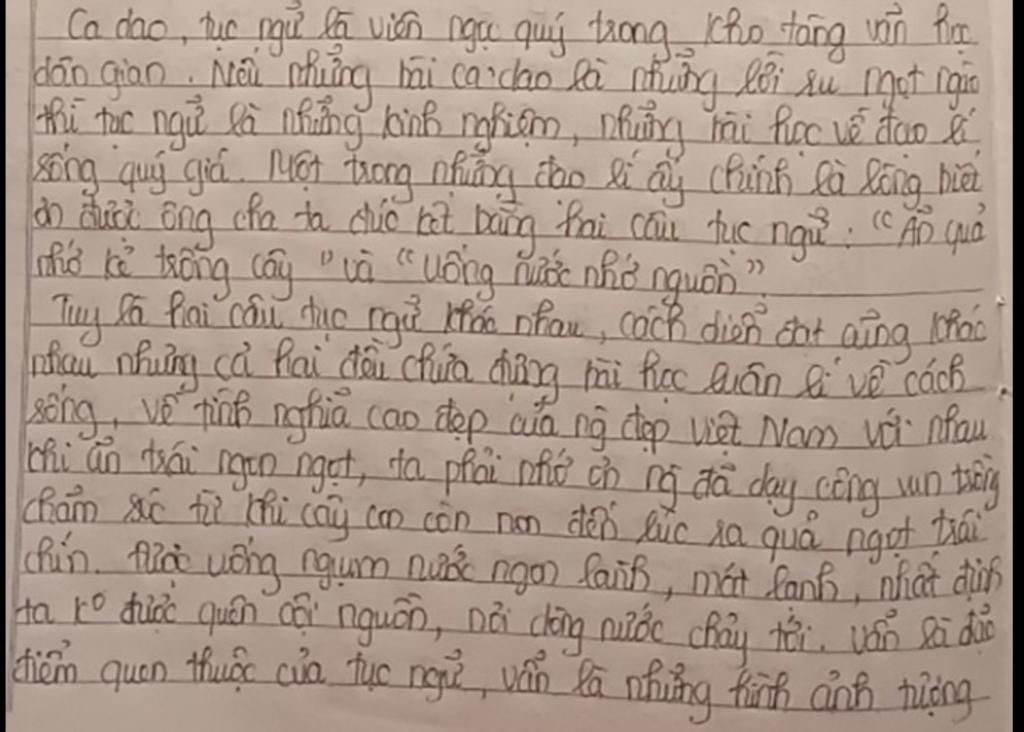 Ca dao, tục ngữ là viên ngọc quý trong kho tàng văn học
dân gian. Nếu những bài ca dao là những lời ru ngọt ngào
thì tục ngữ là những kinh nghiệm, những bài học về đạo lí
sống quý giá. Một trong những đạo lí ấy chính là lòng biết
ơn được ông cha ta đúc kết bằng hai câu tục ngữ: "Ăn quả
nhớ kẻ trồng cây" và "Uống nước nhớ nguồn".
Tuy là hai câu tục ngữ khác nhau, cách diễn đạt cũng khác
nhau nhưng cả hai đều chứa đựng bài học luân lí về cách
sống, về tình nghĩa cao đẹp của ng đẹp Việt Nam với nhau
khi ăn trái ngon ngọt, ta phải nhớ ơn ng đã dạy công vun trồng
chăm sóc từ khi cây con còn non đến lúc ra quả ngọt trái
chín. Được uống ngụm nước ngon lành, mát lành, nhất định
ta ko được quên cội nguồn, nơi dòng nước chảy tới. Vẫn là đặc
điểm quen thuộc của tục ngữ, vẫn là những hình ảnh tượng